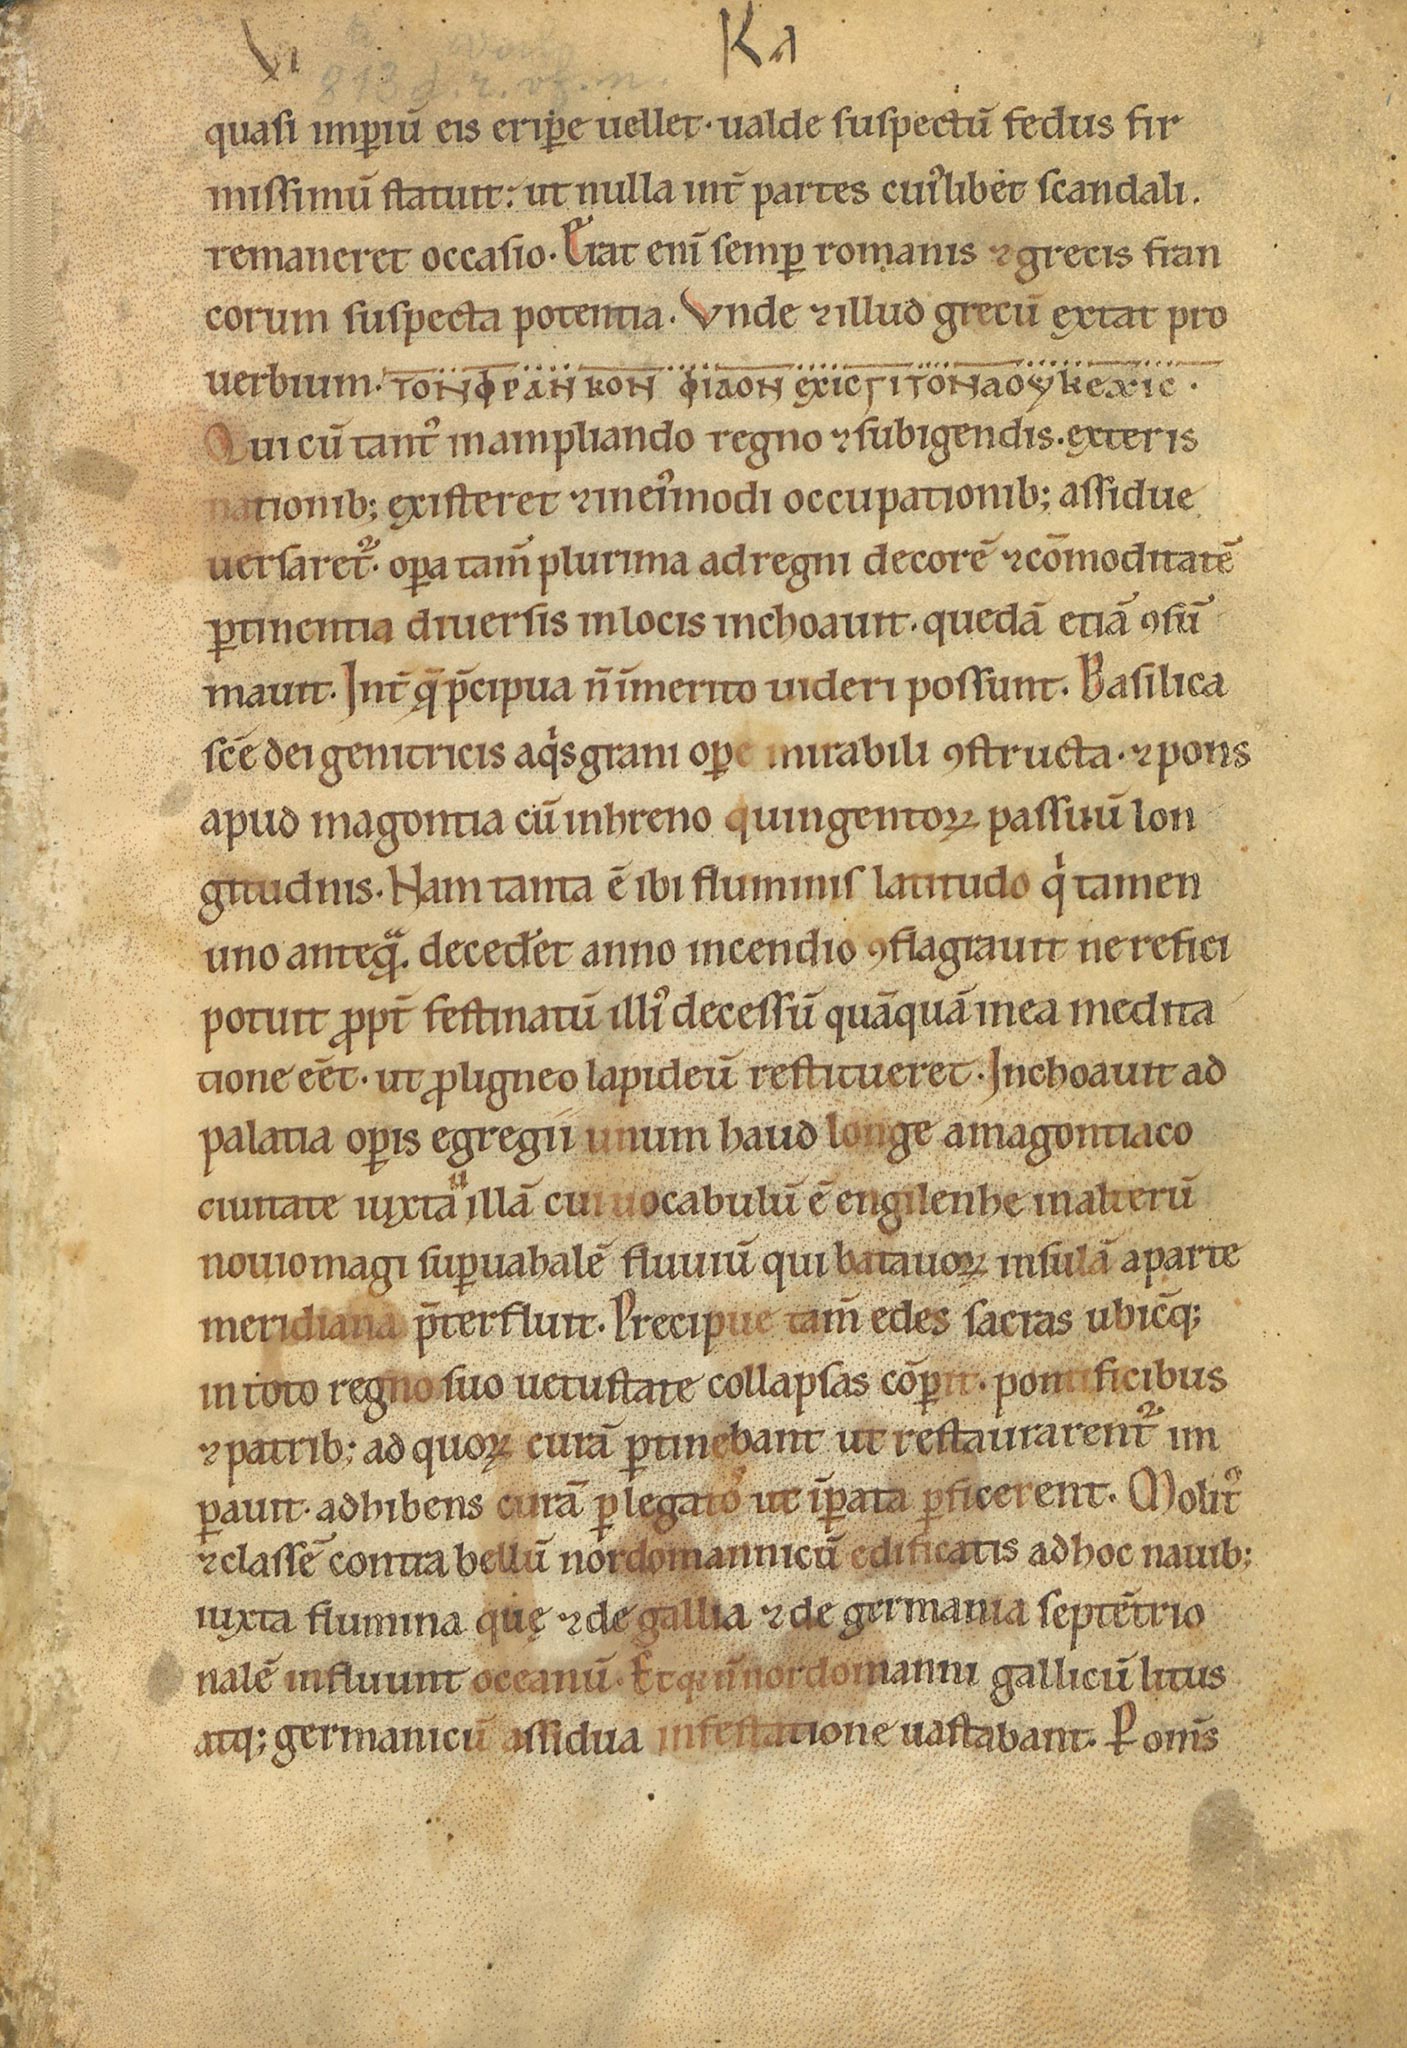 VI Ka
813 d. r. vf. m.
quasi imꝑiū eis eriꝑe uellet· ualde suspectū fedus fir
missimū statuit: ut nulla int̄ partes cuiꝰlibet scandali.
remaneret occasio. Erat eni̅ semꝑ romanis ⁊ grecis fran
corum suspecta potentia. Vnde ⁊ illud grecū extat pro
uerbium. ΤΟΝΦΡΑΝΚΟΝ ΦΙΛΟΝ ΕΧΙC ΓΙΤΟΝΑ ΟΥΚ ΕΧΙC .
Qui cū tantꝰ in ampliando regno ⁊ subigendis. exteris
nationib; existeret ⁊ in eiꝰmodi occupationib; assidue
uersaret᷑. oꝑa tam̄ plurima ad regni decorē ⁊ cōmoditatē
ꝑtinentia diuersis in locis inchoauit. quedā etiā ꝯsū
mauit. Int̄ q̄ p̄cipua n̄ īmerito uideri possunt. Basilica
sc̄e dei genitricis aq̇sgrani oꝑe mirabili ꝯstructa. ⁊ pons
apud magontia cū in hreno quingentoꝝ passuū lon
gitudnis. Nam tanta ē ibi fluminis latitudo q̇ tamen
uno anteqͣ. deced̄et anno incendio ꝯflagrauit ne refici
potuit ꝓpt̄ festinatū illiꝰ decessū quāquā in ea medita
tione eēt. ut ꝓ ligneo lapideū restitueret. Inchoauit ad
palatia oꝑis egregii unum haud longe a magontiaco
ciuitate iuxta uillā cui uocabulū ē engilenhe in alterū
nouiomagi suꝑ uahalē fluuiū qui batauoꝝ insulā a parte
meridiana p̄terfluit. Precipue tam̄ edes sacras ubicūq;
in toto regno suo uetustate collapsas cōꝑit. pontificibus
⁊ patrib; ad quoꝝ curā ꝑtinebant ut restaurarent᷑ im
ꝑauit. adhibens curā ꝑ legatoꝰ ut īꝑata ꝑficerent. Molit᷑
⁊ classē contra bellū nordomannicū edificatis ad hoc nauib;
iuxta flumina quę ⁊ de gallia ⁊ de germania septētrio
nalē influunt oceanū. Et q̇ n̄ nordomanni gallicū litus
atq; germanicū assidua infestatione uastabant. P om̄s